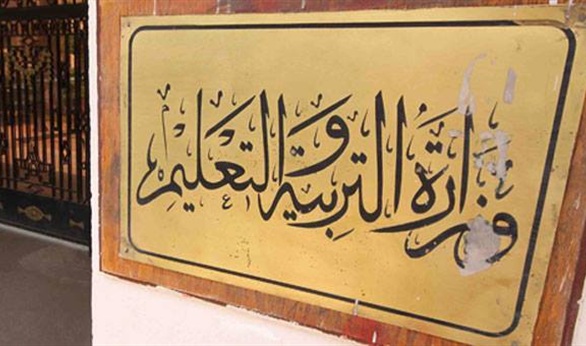 وزارة التربية والتعليم